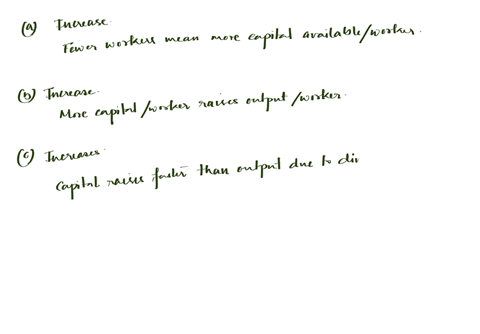 (a) Increase.
Fewer workers mean more capital available/worker.
(b) Increase.
More capital/worker raises output/worker.
(c) Increases.
Capital raises faster than output due to dim